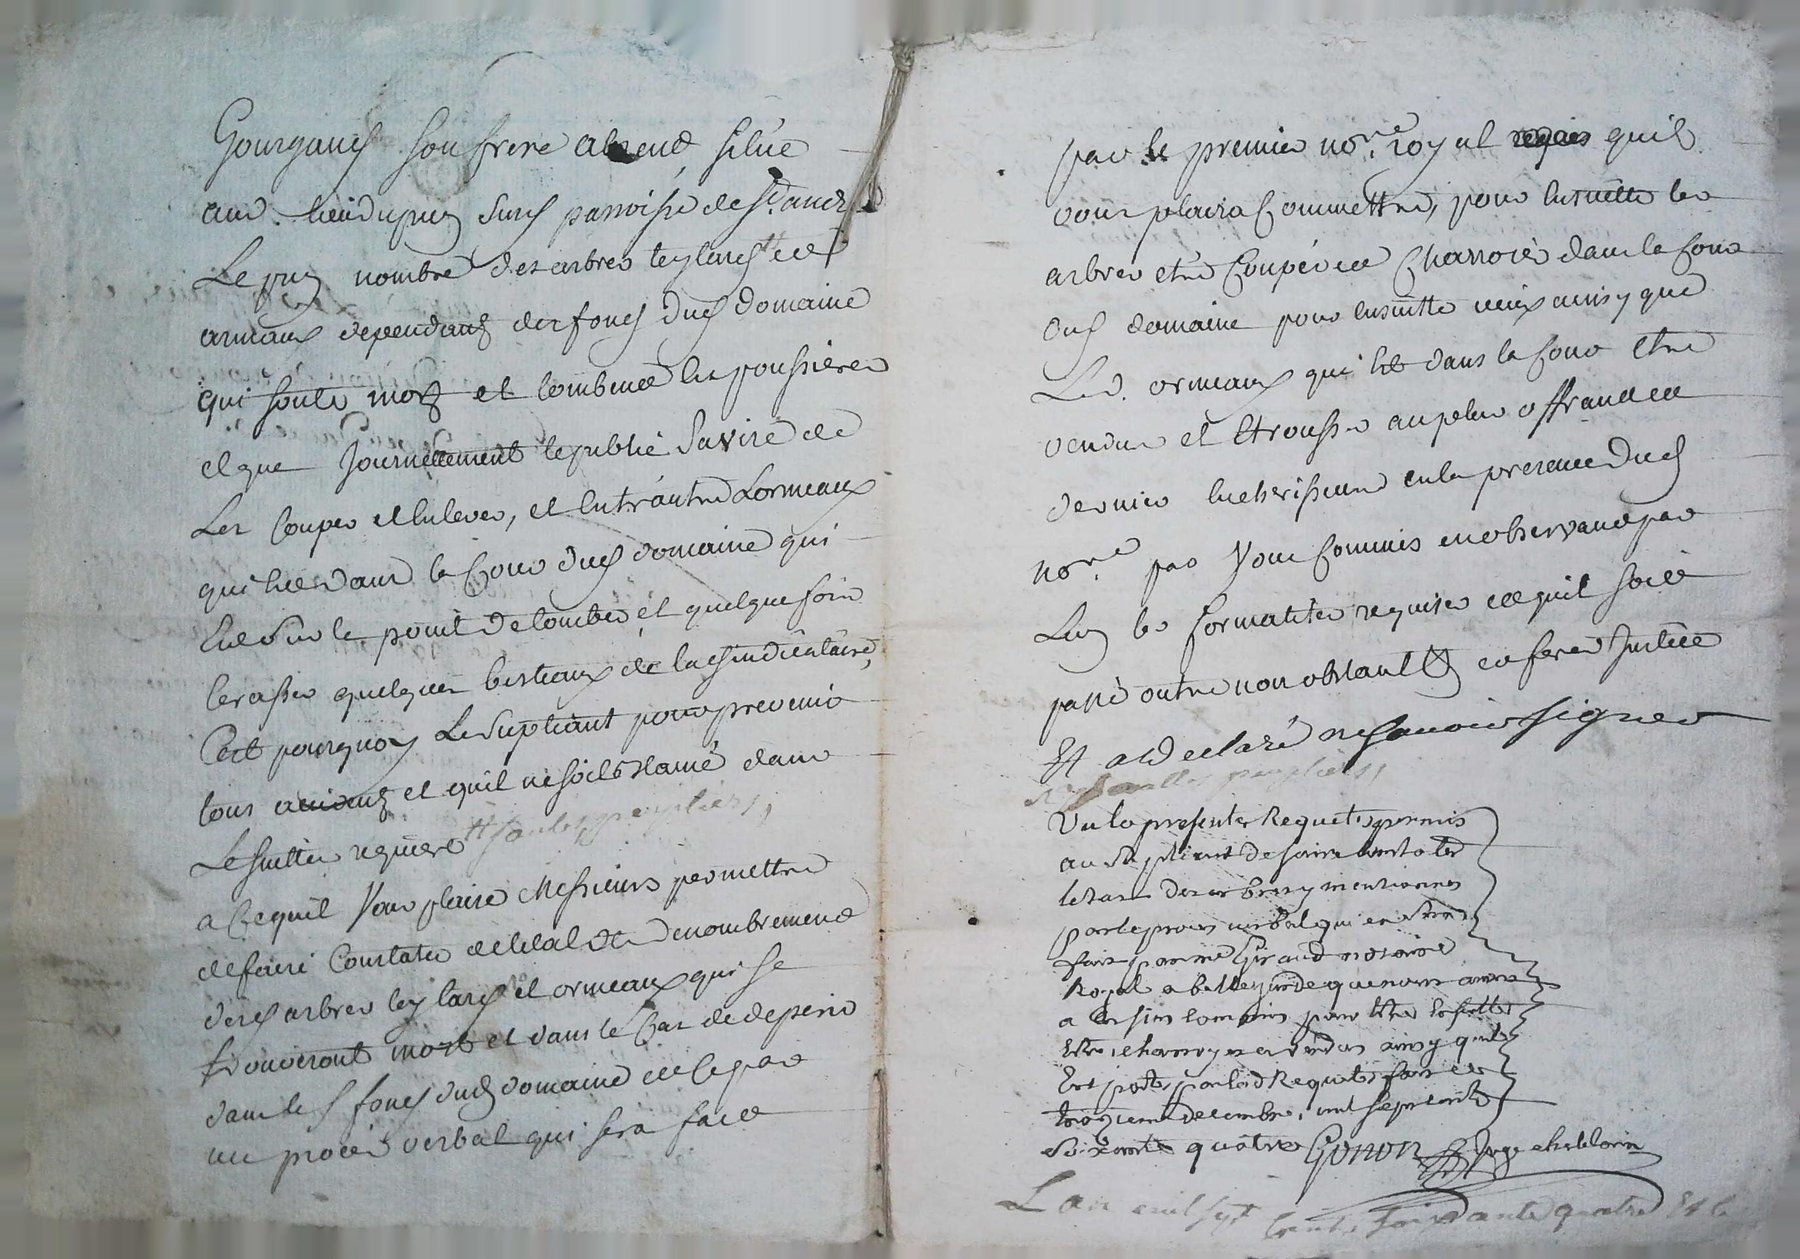 Gourgaud son frere absend situé
aud. lieu dupuy susd parroisse de st. andré
Le puy nombre des arbres
ormaux dependants des fonds dud domaine
qui sonts morts et tombent les poussieres
et que journellement le public savise de
Les couper et enlever, et entrautre Lormeaux
qui est dans la Cour dud domaine qui
Est sur le point de tomber et quelque fois
Ecraser quelques bestiaux de
C'est pourquoy Le supliant pour prevenir
tous accidents et quil ne soit blamé dans
Le suitte requiere
a Ce quil Vous plaise Messieurs permettre
de faire Constater de letat et denombrement
desd arbres et ormeaux qui se
trouveront morts et dans le Cas de deperir
dans les fonds dud domaine et Ce par
un procés verbal qui sera fait
par le premier nore. royal quil
vous plaira Commettre, pour ensuitte les
arbres etre Coupés et Charroiés dans la Cour
dud domaine pour ensuitte iceux ainsy que
Led. ormeaux qui est dans la Cour etre
vendus et Etroussé au plus offrand et
dernier encherisseur en la presence dud
nore. par Vous Commis en observand par
Luy les formalités requises et quil soit
passé outre non obstant et ferez Justice
Et a declaré ne sçavoir signer
Vu la presente Requete permis
au supliant de faire constater
letat des arbres y mentionnes
par le proces verbal qui en sera
fait par me Giraud notaire
Royal a que nous avons
a ces fins commis pour
Etre charroyes et vendus ainsy quil
Est porté par lad Requete fait ce
decembre, mil sept cents
soixante quatre Gonon Juge chatelain
L'an mil sept Cents soixante quatre Et le